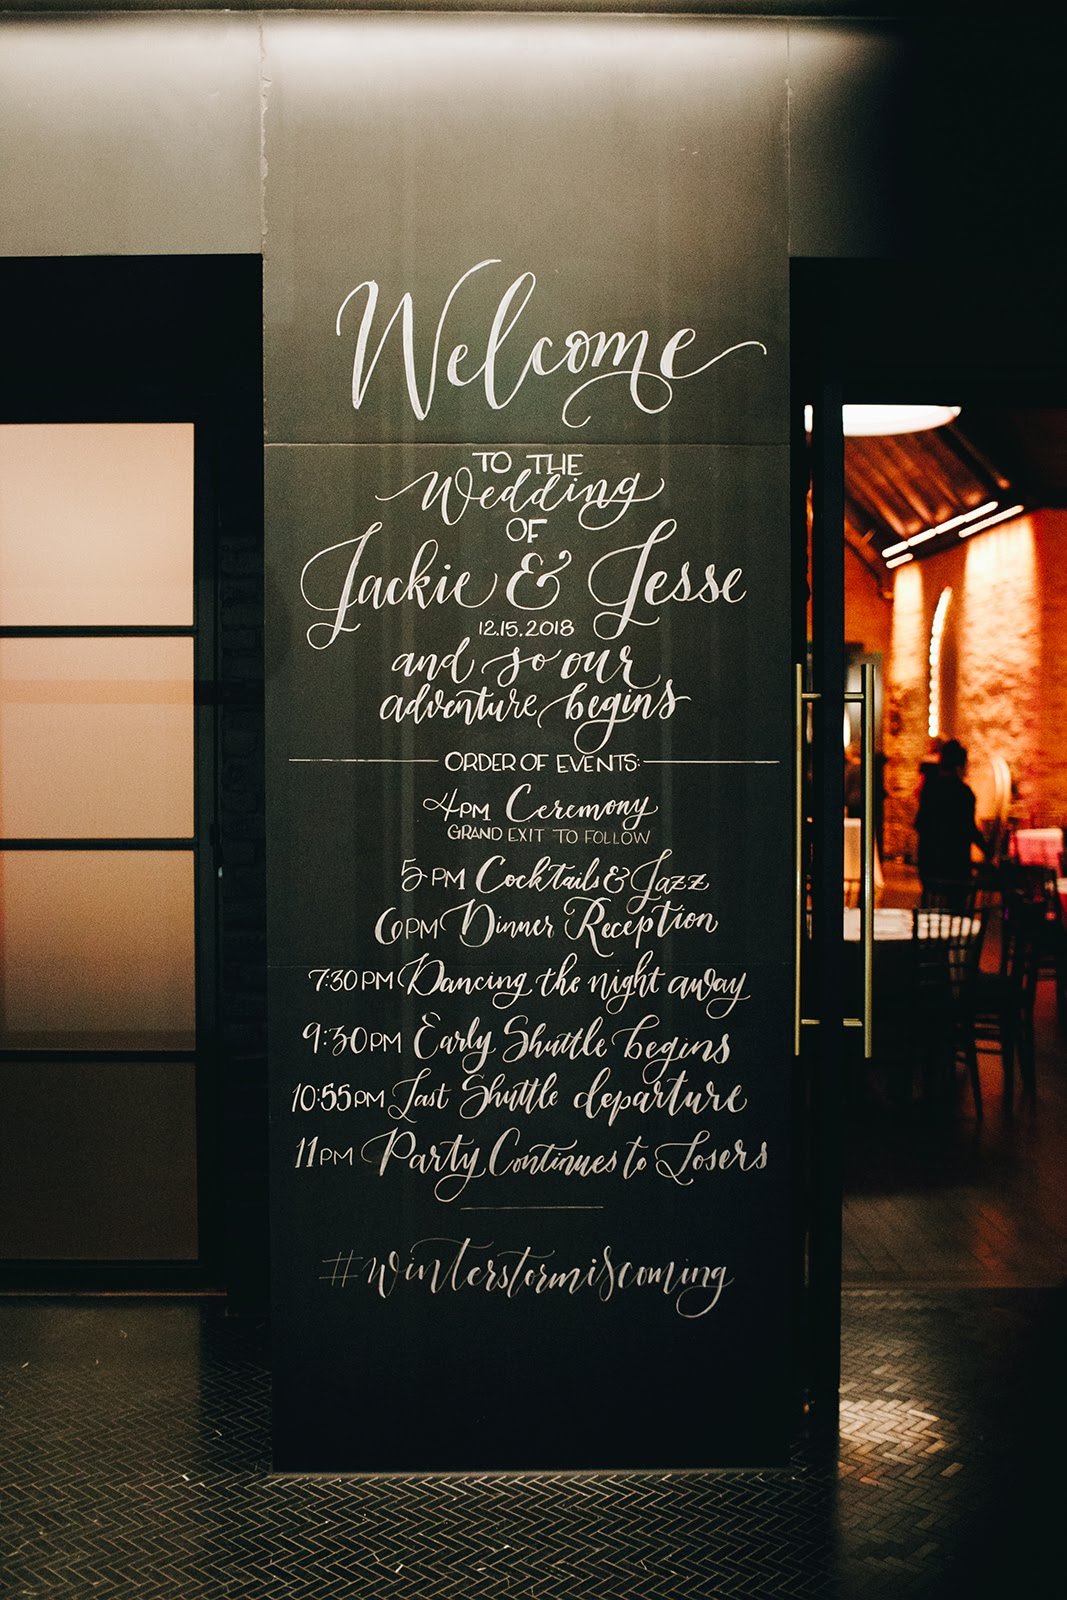 Welcome
TO THE
Wedding
OF
Jackie & Jesse
12.15.2018
and so our
adventure begins
ORDER OF EVENTS:
4PM Ceremony
GRAND EXIT TO FOLLOW
5PM Cocktails & Jazz
6PM Dinner Reception
7:30PM Dancing the night away
9:30PM Early Shuttle begins
10:55PM Last Shuttle departure
11PM Party Continues to Losers
#winterstormiscoming